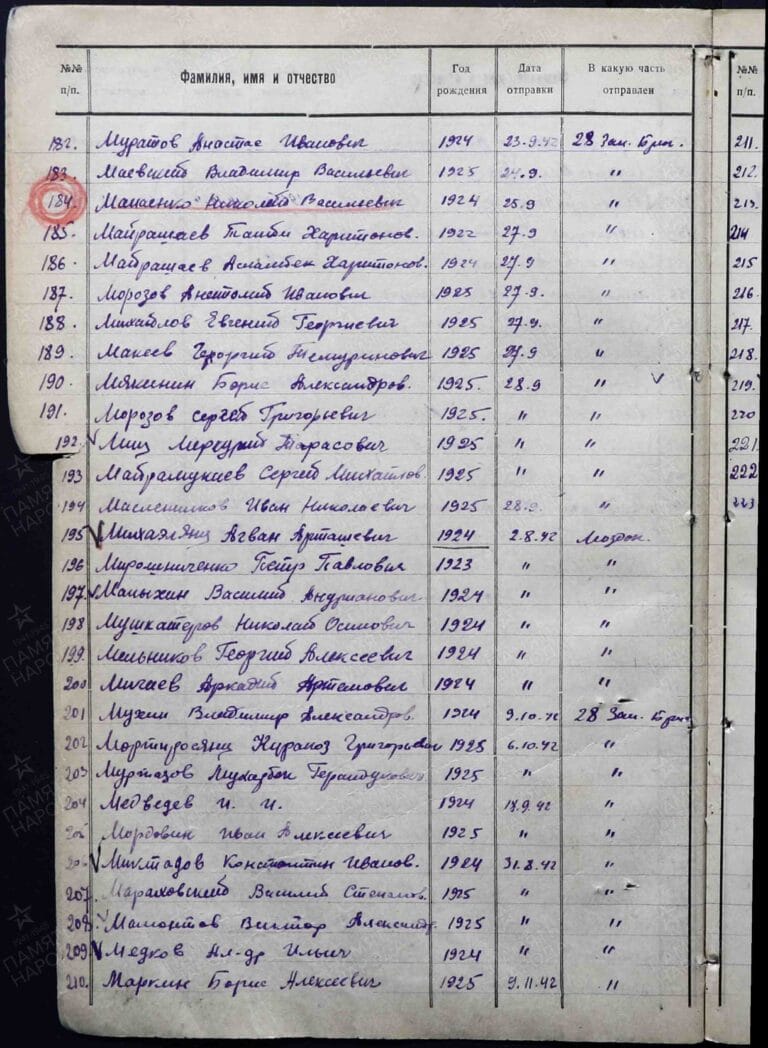 №№ п/п. Фамилия, имя и отчество Год рождения Дата отправки В какую часть отправлен №№ п/п.
182. Муратов Анастас Иванович 1924 23.9.42 28 Зап. Бриг. 211.
183. Маевский Владимир Васильевич 1925 24.9. " 212.
184. Манаенко Николай Васильевич 1924 25.9 " 213.
185. Майрашаев Харитонов. 1922 27.9 " 214
186. Майрашаев Асламбек Харитонов. 1924 27.9 " 215
187. Морозов Анатолий Иванович 1925 27.9. " 216.
188. Михайлов Евгений Георгиевич 1925 27.9. " 217.
189. Макеев Георгий 1925 27.9 " 218.
190. Мякинин Борис Александров. 1925. 28.9 " 219.
191. Морозов Сергей Григорьевич 1925. " " 220
192. Тарасович 1925 " " 221
193 Майрамукаев Сергей Михайлов. 1925 " " 222
194 Масленников Иван Николаевич 1925 28.9. " 223
195 Михаэлянц Агван Арташевич 1924 2.8.42 Моздок.
196 Мирошниченко Петр Павлович 1923 " "
197. Малыхин Василий Андрианович 1924 " "
198 Мушкатеров Николай Осипович 1924 " "
199. Мельников Георгий Алексеевич 1924 " "
200 Аркадий Артемович 1924 " "
201 Мухин Владимир Александров. 1924 9.10.42 28 Зап. Бриг.
202 Мортиросянц Григорьевич 1925 6.10.42 "
203 Муртазов 1925 " "
204 Медведев И. И. 1924 "
205 Мордовин Иван Алексеевич 1925 " "
206 Константин Иванов. 1924 31.8.42 "
207. Мараховский Василий Степанов. 1925 " "
208. Мамонтов Виктор Александр. 1925 " "
209 Медков Ал-др Ильич 1924 " "
210. Маркин Борис Алексеевич 1925 9.11.42 "